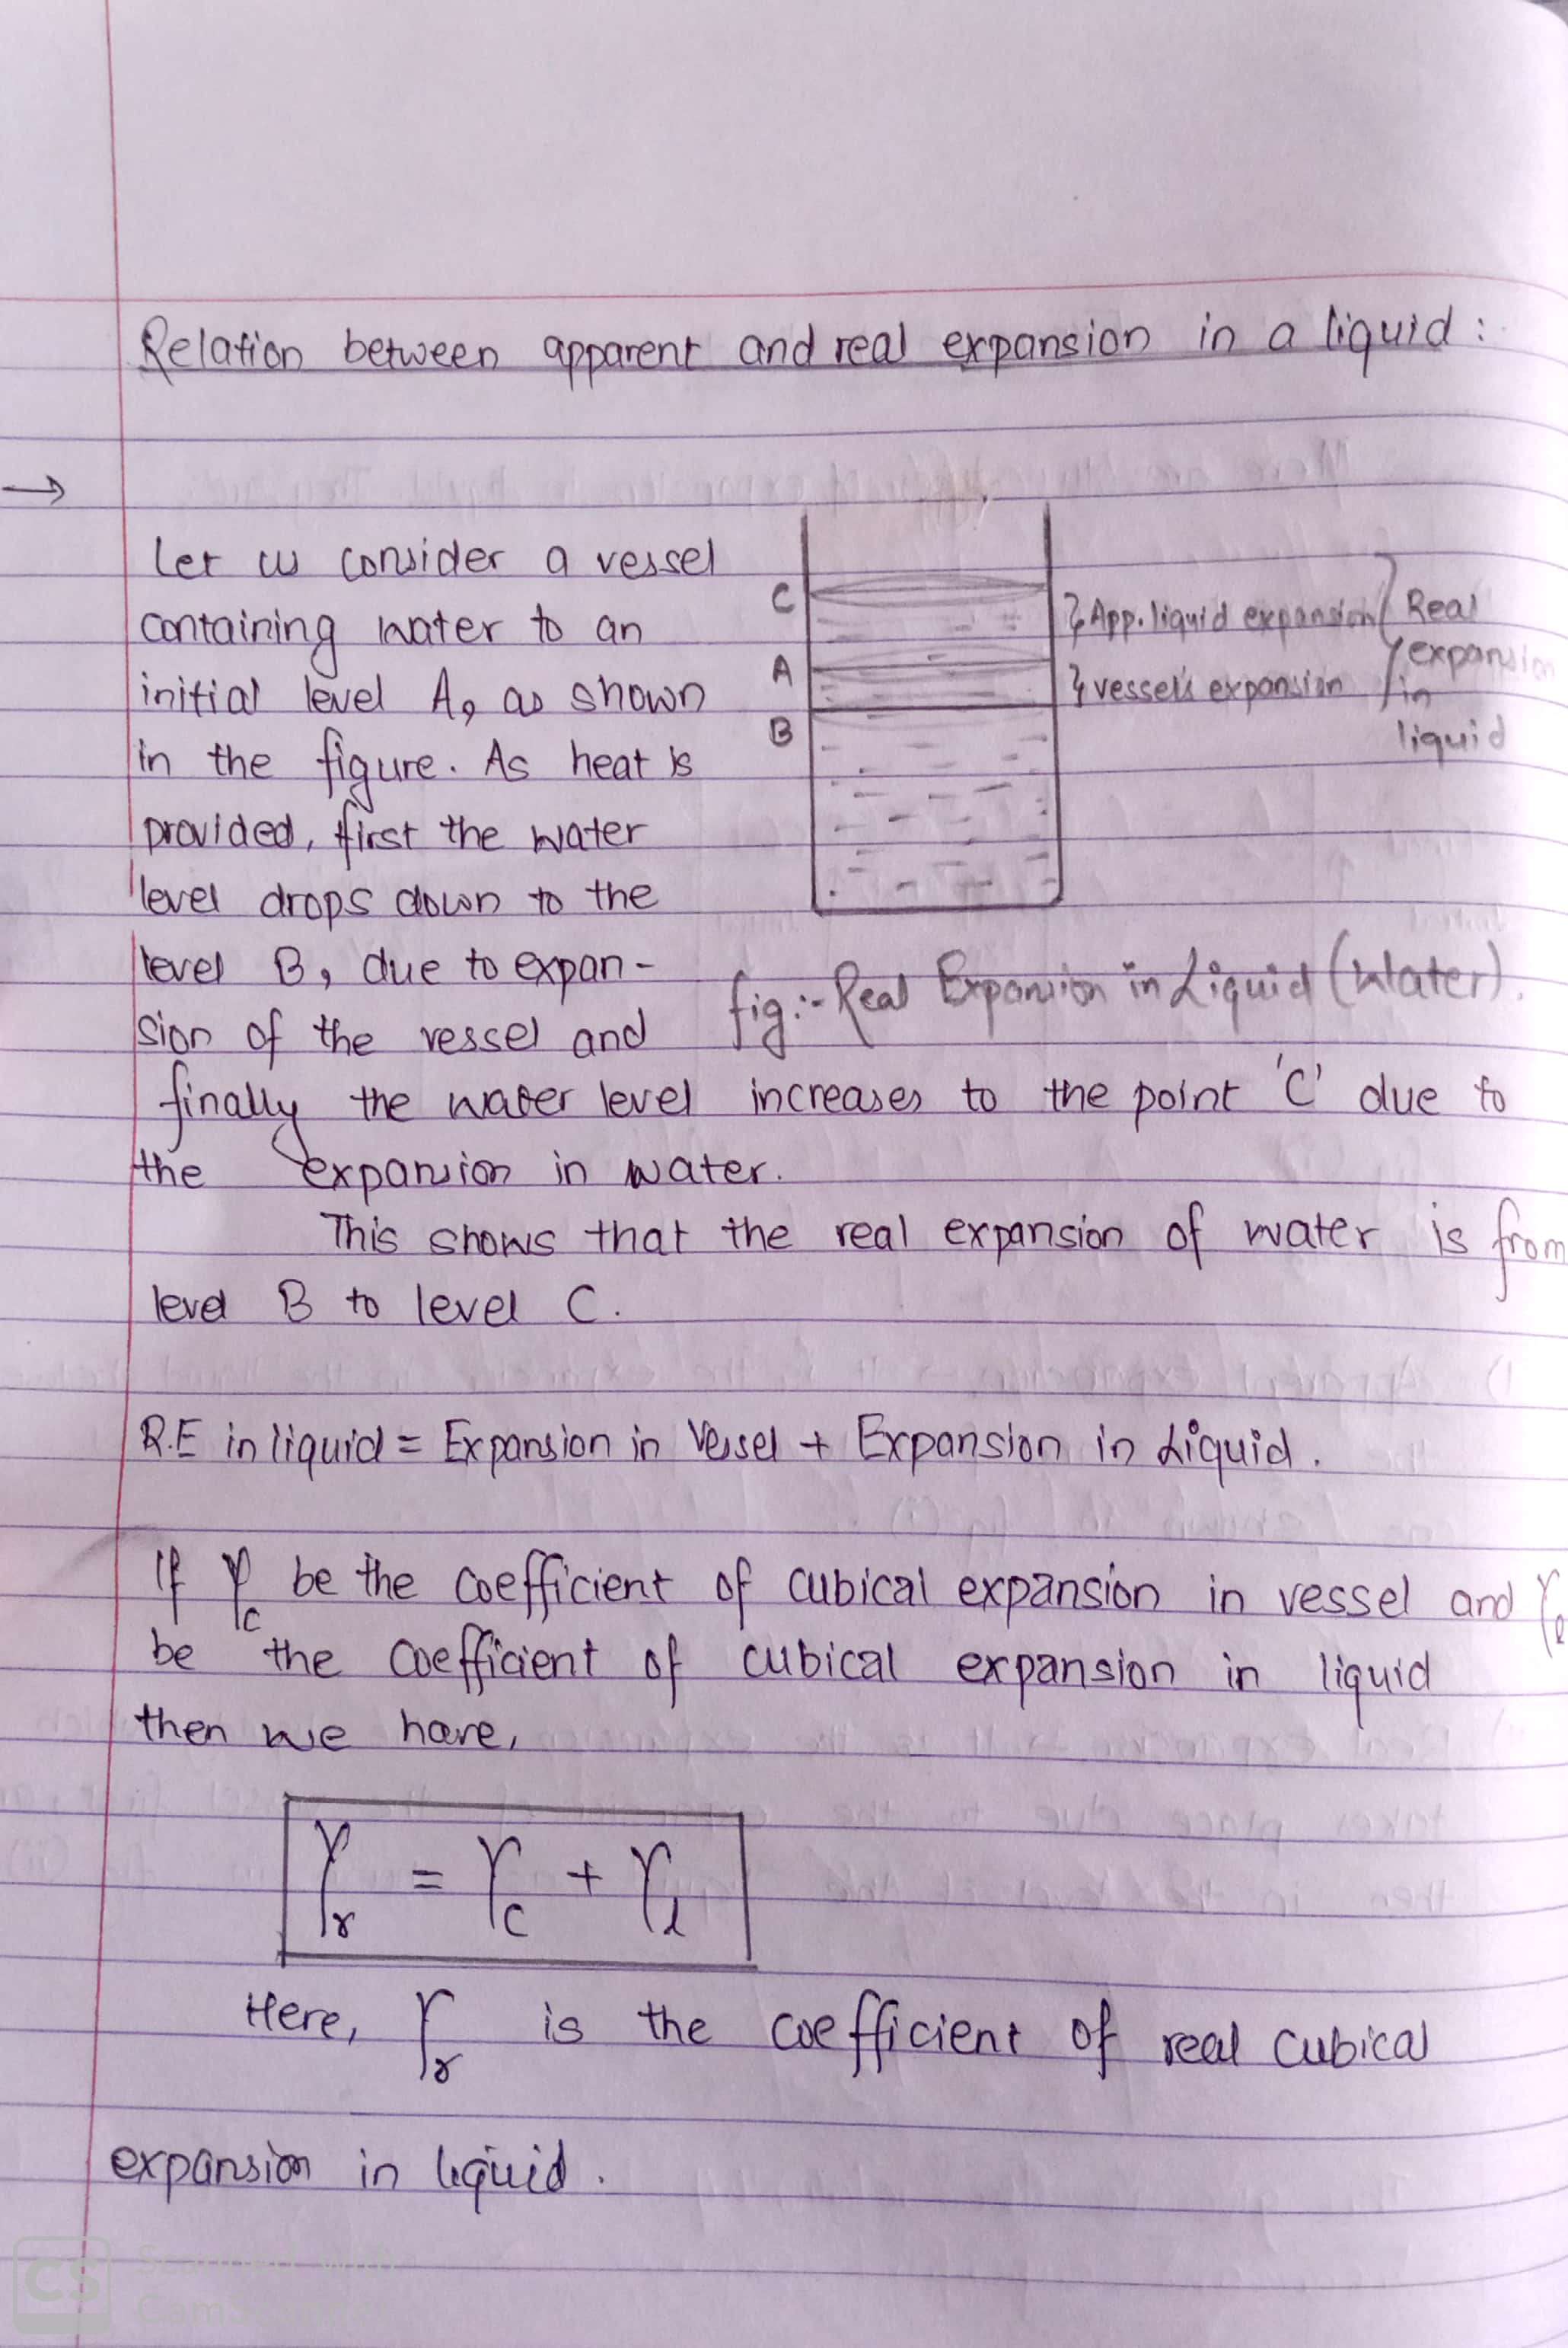 Relation between apparent and real expansion in a liquid :
→
Let us consider a vessel
containing water to an
initial level A, as shown
in the figure. As heat is
provided, first the water
level drops down to the
level B, due to expan-
sion of the vessel and
C
A
B
App. liquid expansion
vessel's expansion
Real
expansion
in
liquid
fig:- Real Expansion in Liquid (Water).
finally the water level increases to the point 'C' due to
the expansion in water.
This shows that the real expansion of water is from
level B to level C.
R.E in liquid = Expansion in Vessel + Expansion in Liquid.
If γc be the coefficient of cubical expansion in vessel and γl
be the coefficient of cubical expansion in liquid
then we have,
γr = γc + γl
Here, γr is the coefficient of real cubical
expansion in liquid.
CS
Scanned with
CamScanner